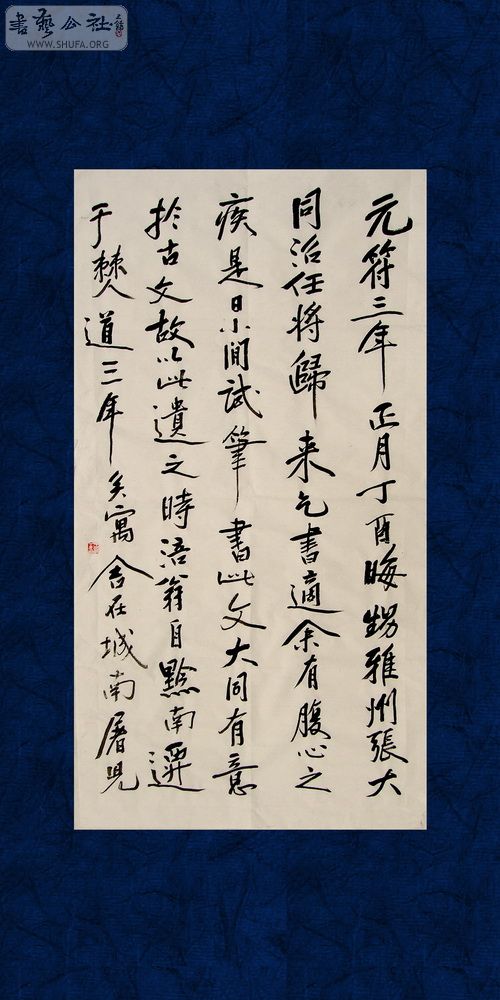 書藝公社
WWW.SHUFA.ORG
元符三年正月丁酉晦甥雅州張大
同治任將歸来乞書適余有腹心之
疾是日小閒試筆書此文大同有意
於古文故以此遺之時涪翁自黔南遷
于僰道三年矣寓舍在城南屠児